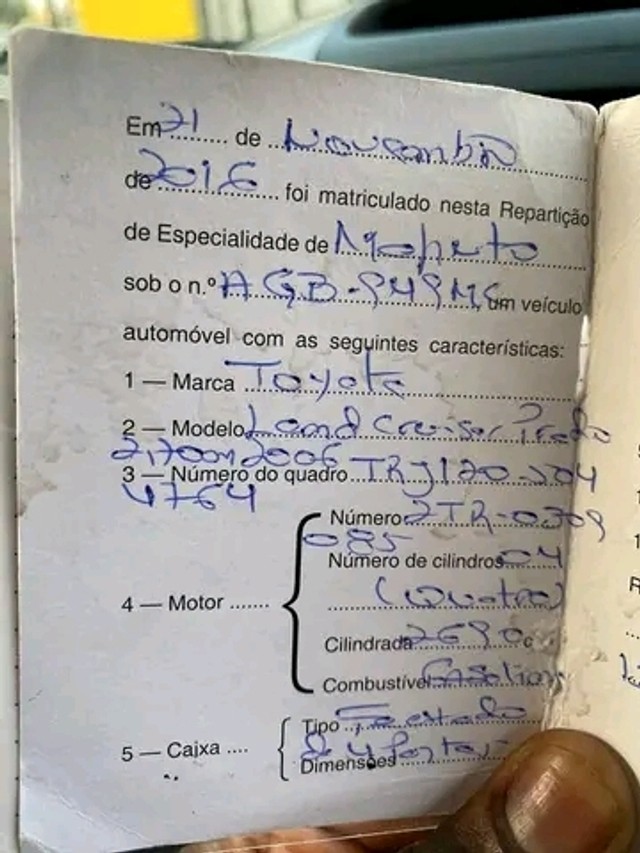 Em 21 de Novembro
de 2016 foi matriculado nesta Repartição
de Especialidade de Maputo
sob o n.º AGB-949MC, um veículo
automóvel com as seguintes características:
1 — Marca Toyota
2 — Modelo Land Cruiser Prado
2,700m 2006
3 — Número do quadro TRJ120-504
4764
Número 2TR-0309
085
Número de cilindros 04
4 — Motor ....... (Quatro)
Cilindrada 2690 c
Combustível Gasolina
Tipo Fechado
5 — Caixa .... de 4 Portas
Dimensões